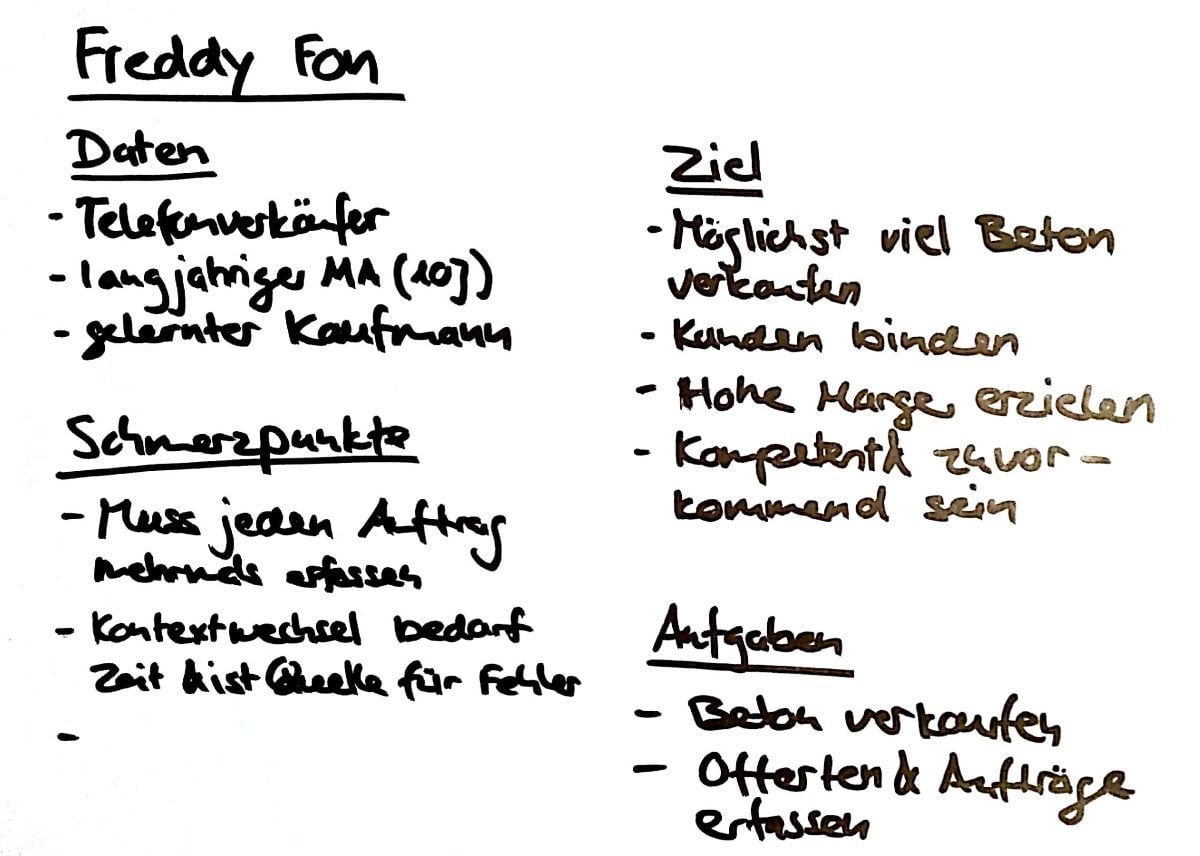 Freddy Fon
Daten
- Telefonverkäufer
- langjähriger MA (10J)
- gelernter Kaufmann
Schmerzpunkte
- Muss jeden Auftrag
mehrmals erfassen
- Kontextwechsel bedarf
Zeit & ist Quelle für Fehler
-
Ziel
- Möglichst viel Beton
verkaufen
- Kunden binden
- Hohe Marge erzielen
- Kompetent & zuvor-
kommend sein
Aufgaben
- Beton verkaufen
- Offerten & Aufträge
erfassen